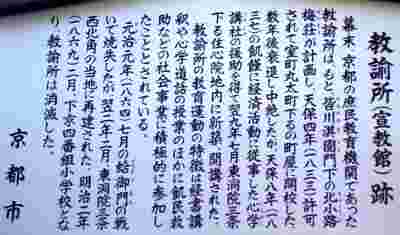 教諭所(宣教館)跡
幕末、京都の庶民教育機関であった
教諭所は、もと皆川淇園門下の北小路
梅荘が計画し、天保四年(一八三三)許可
されて室町丸太町下るの町屋に開校した。
数年後衰退し中絶したが、天保八年(一八
三七)の飢饉に経済活動に従事した心学
講社の後助を得て翌九年七月東洞院三条
下る住心院地内に新築、開講された。
教諭所の教育運動の特徴は経書講
釈や心学道話の授業のほかに飢民救
助などの社会事業に積極的に参加し
たこととされている。
元治元年(一八六四)七月の蛤御門の戦
いで焼失したが翌二年二月、東洞院三条
西北角の当地に再建された。明治二年(一
八六九)二月、下京四番組小学校とな
り、教諭所は消滅した。
京都市